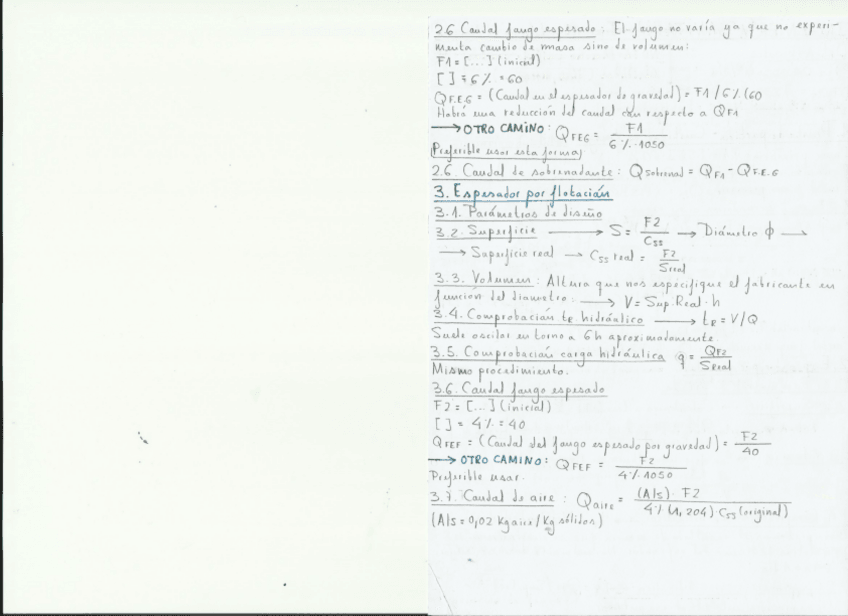 2.6 Caudal fango espesado: El fango no varía ya que no experi-
menta cambio de masa sino de volumen:
F1 = [...] (inicial)
[ ] = 6% = 60
QF.E.G = (Caudal en el espesador de gravedad) = F1 / 6% (60
Habrá una reducción del caudal con respecto a QF1
→ OTRO CAMINO: QFEG = F1 / 6%·1050
(Preferible usar esta forma)
2.6. Caudal de sobrenadante: Qsobrenad = QF1 - QF.E.G
3. Espesador por flotación
3.1. Parámetros de diseño
3.2. Superficie → S = F2 / Css → Diámetro ϕ →
→ Superficie real → Css real = F2 / Sreal
3.3. Volumen: Altura que nos especifique el fabricante en
función del diametro: → V = Sup.Real·h
3.4. Comprobación tR hidráulico → tR = V/Q
Suele oscilar en torno a 6h aproximadamente
3.5. Comprobación carga hidráulica q = QF2 / Sreal
Mismo procedimiento.
3.6. Caudal fango espesado
F2 = [...] (inicial)
[ ] = 4% = 40
QFEF = (Caudal del fango espesado por gravedad) = F2 / 40
→ OTRO CAMINO: QFEF = F2 / 4%·1050
Preferible usar.
3.7. Caudal de aire: Qaire = (A/s)· F2 / 4% (1,204)·Css (original)
(A/s = 0,02 Kg aire / Kg sólidos)